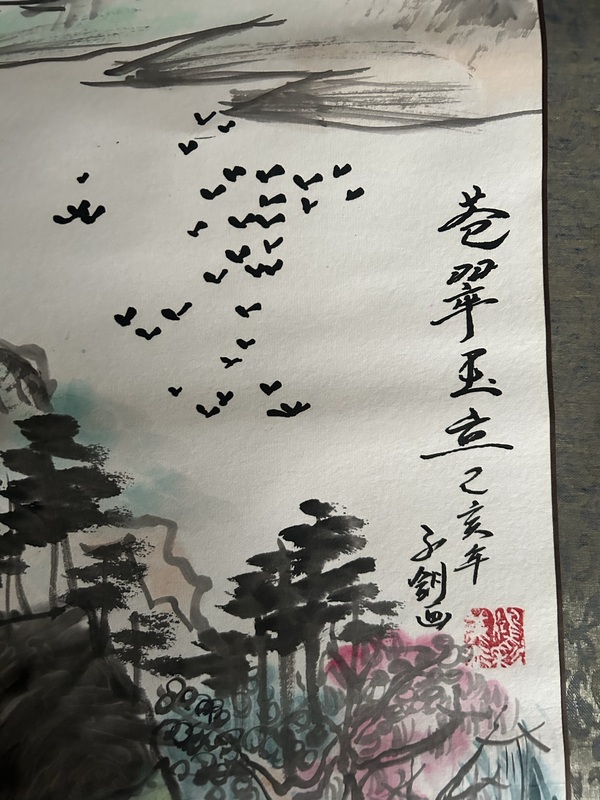 苍翠玉立
己亥年
子剑画